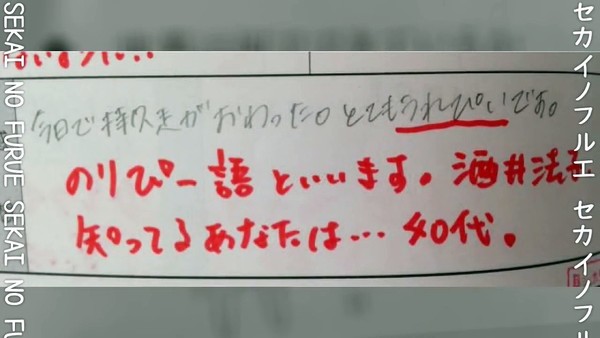 今日で持久走がおわった。とてもうれぴいです。
のりぴー語といいます。酒井法子
知ってるあなたは…40代。
SEKAI NO FURUE SEKAI NO FU
セカイノフルエ セカイノフル